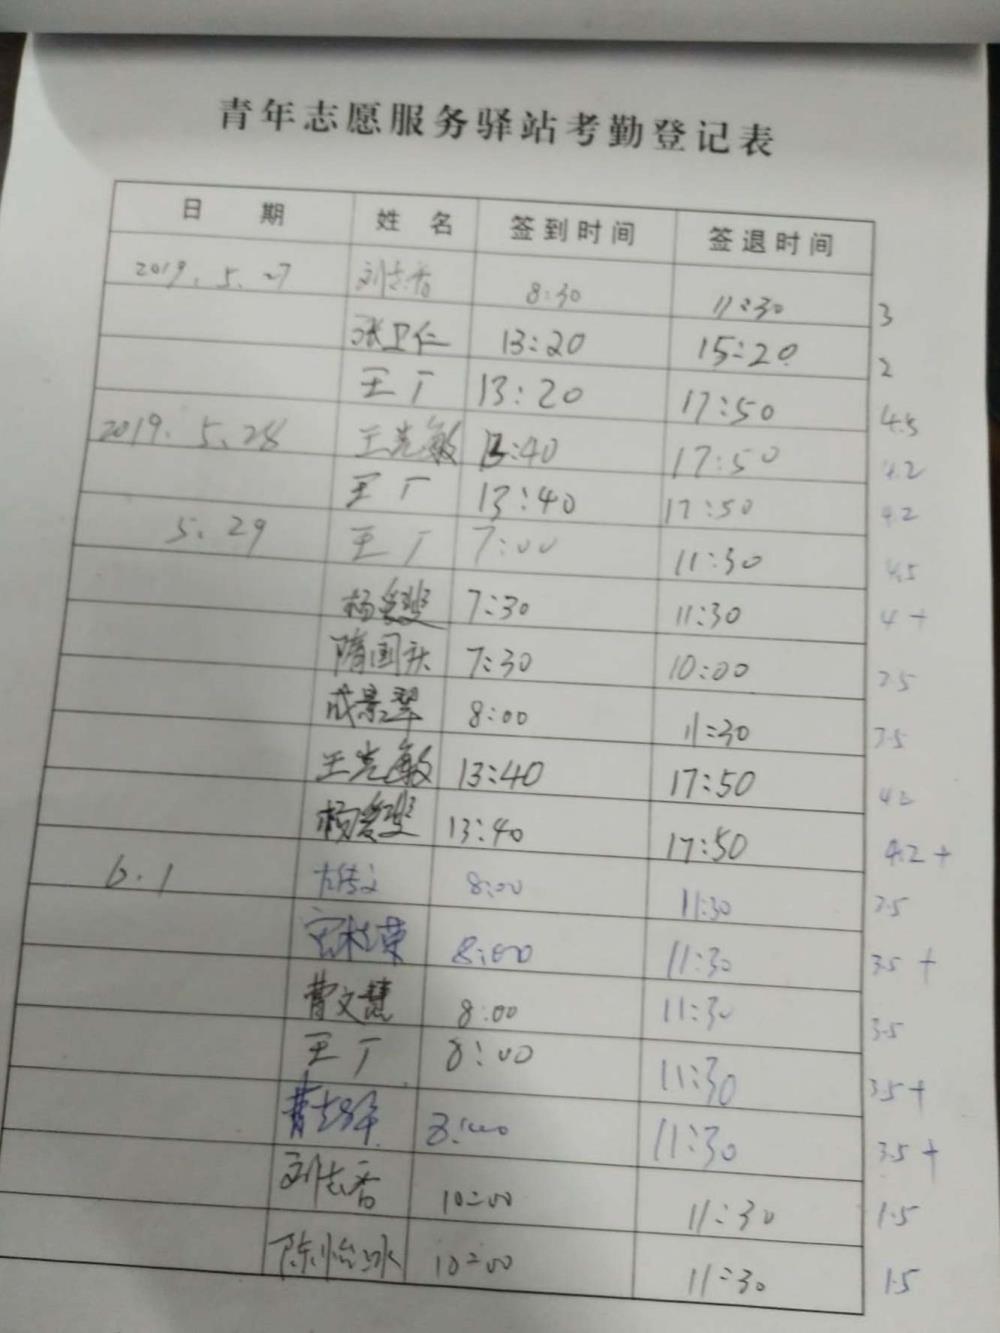 青年志愿服务驿站考勤登记表
日 期 姓 名 签到时间 签退时间
2019.5.27 刘志香 8:30 11:30 3
张卫仁 13:20 15:20 2
王厂 13:20 17:50 4.5
2019.5.28 王克敏 13:40 17:50 4.2
王厂 13:40 17:50 4.2
5.29 王厂 7:00 11:30 4.5
杨爱斐 7:30 11:30 4+
隋国 7:30 10:00 2.5
成景翠 8:00 11:30 3.5
王克敏 13:40 17:50 4.2
杨爱斐 13:40 17:50 4.2+
6.1 8:00 11:30 3.5
8:00 11:30 3.5+
曹文慧 8:00 11:30 3.5
王厂 8:00 11:30 3.5+
8:00 11:30 3.5+
刘志香 10:00 11:30 1.5
陈怡冰 10:00 11:30 1.5